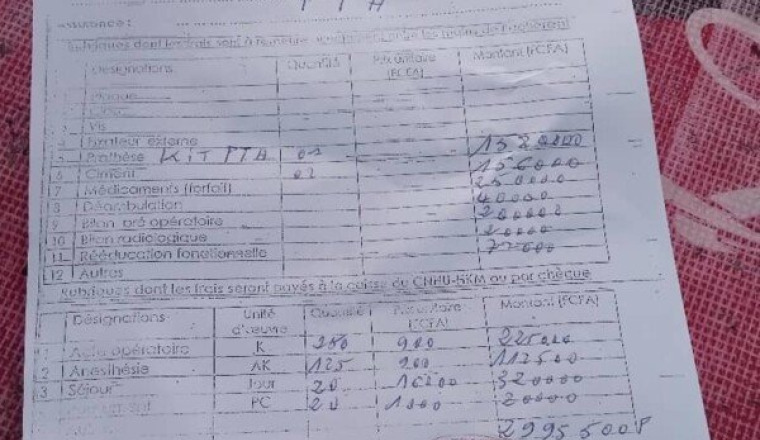 PTH
Assurance :
Rubriques dont les frais sont à remettre
Désignations Quantité Prix unitaire (FCFA) Montant (FCFA)
Plaque
Vis
4 Fixateur externe
5 Prothèse KIT PTH 01 1520000
6 Ciment 02 156000
7 Médicaments (forfait) 250000
8 Déambulation 40000
9 Bilan pré opératoire 200000
10 Bilan radiologique
11 Rééducation fonctionnelle
12 Autres
Rubriques dont les frais seront payés à la caisse du CNHU-HKM ou par chèque
Désignations Unité d'œuvre Quantité Prix unitaire (FCFA) Montant (FCFA)
1 Acte opératoire K 250 900 225000
2 Anesthésie AK 125 900 112500
3 Séjour Jour 20 16000 320000
PC 20 1000 20000
2995500F